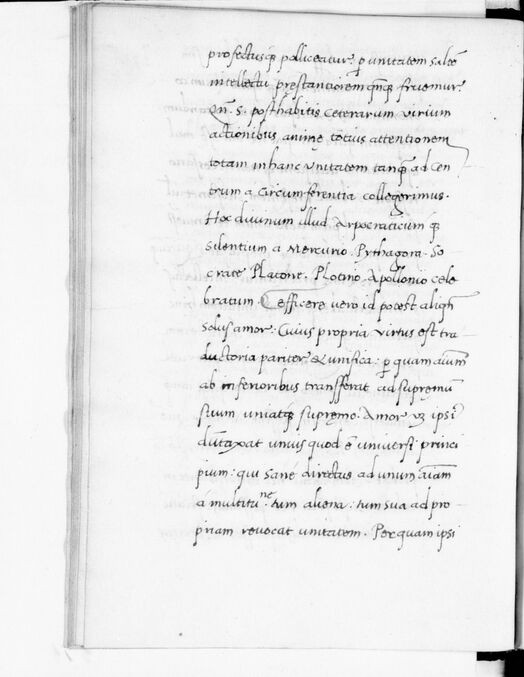 profectusq; polliceatur. p unitatem saltē
intellectu prestantiorem qnq; fruemur.
Qn̄. s. posthabitis ceterarum virium
actionibus animę totius attentionem
totam in hanc unitatem tanq̃ ad cen
trum a circumferentia collegerimus.
Hoc diuinum illud Arpocraticum q;
silentium a Mercurio. Pythagora. So
crate Platone. Plotino. Apollonio cele
bratum. Efficere vero id potest aliqñ
solus amor: Cuius propria virtus est tra
ductoria pariter & unifica: p quam aīum
ab inferioribus transferat ad supremū
suum uniatq; supremo. Amor uʒ ipsi
dūtaxat unius quod ē universi princi
pium: qui sane directus ad unum aīam
a multitune tum aliena: tum sua ad pro
priam revocat unitatem. Per quam ipsi